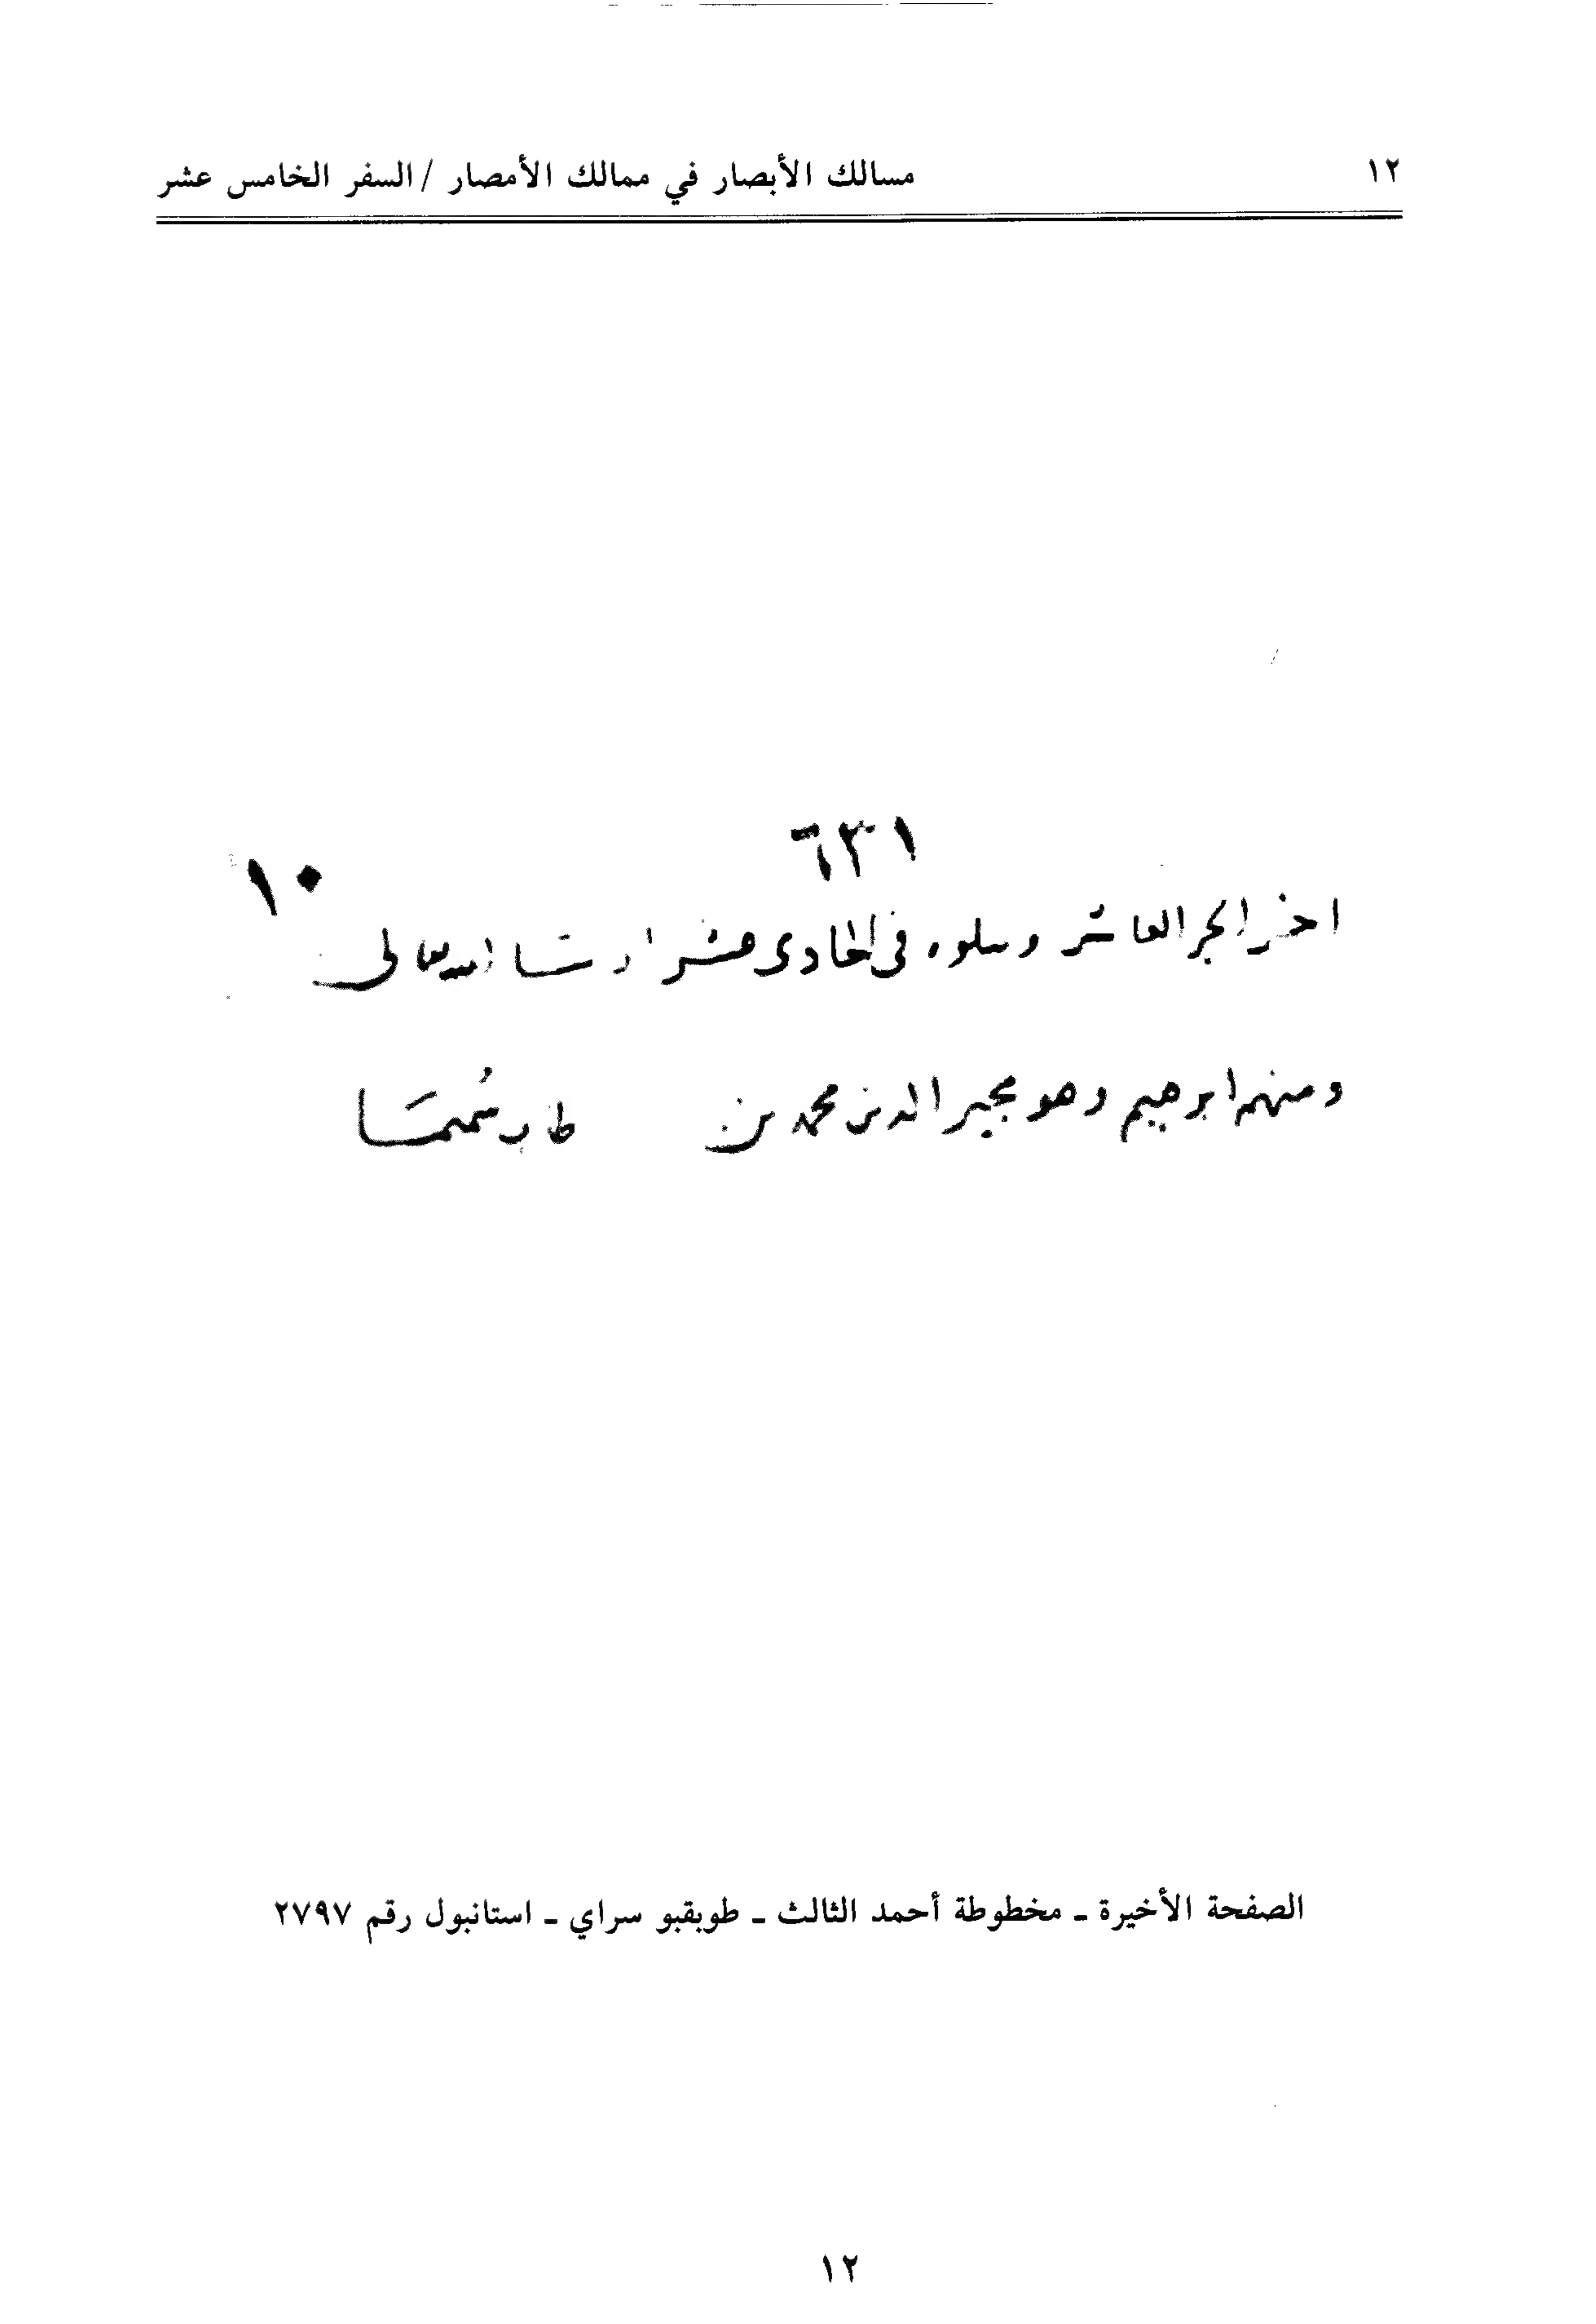 ١٢ مسالك الأبصار في ممالك الأمصار / السفر الخامس عشر
٦٣١
١٠
اخر الجز العاشر وسلوه فى الحادى عشر ان شا الله تعالى
ومنهم ابرهيم وهو مجير الدين محمد بن
الصفحة الأخيرة ـ مخطوطة أحمد الثالث ـ طوبقبو سراي ـ استانبول رقم ٢٧٩٧
١٢